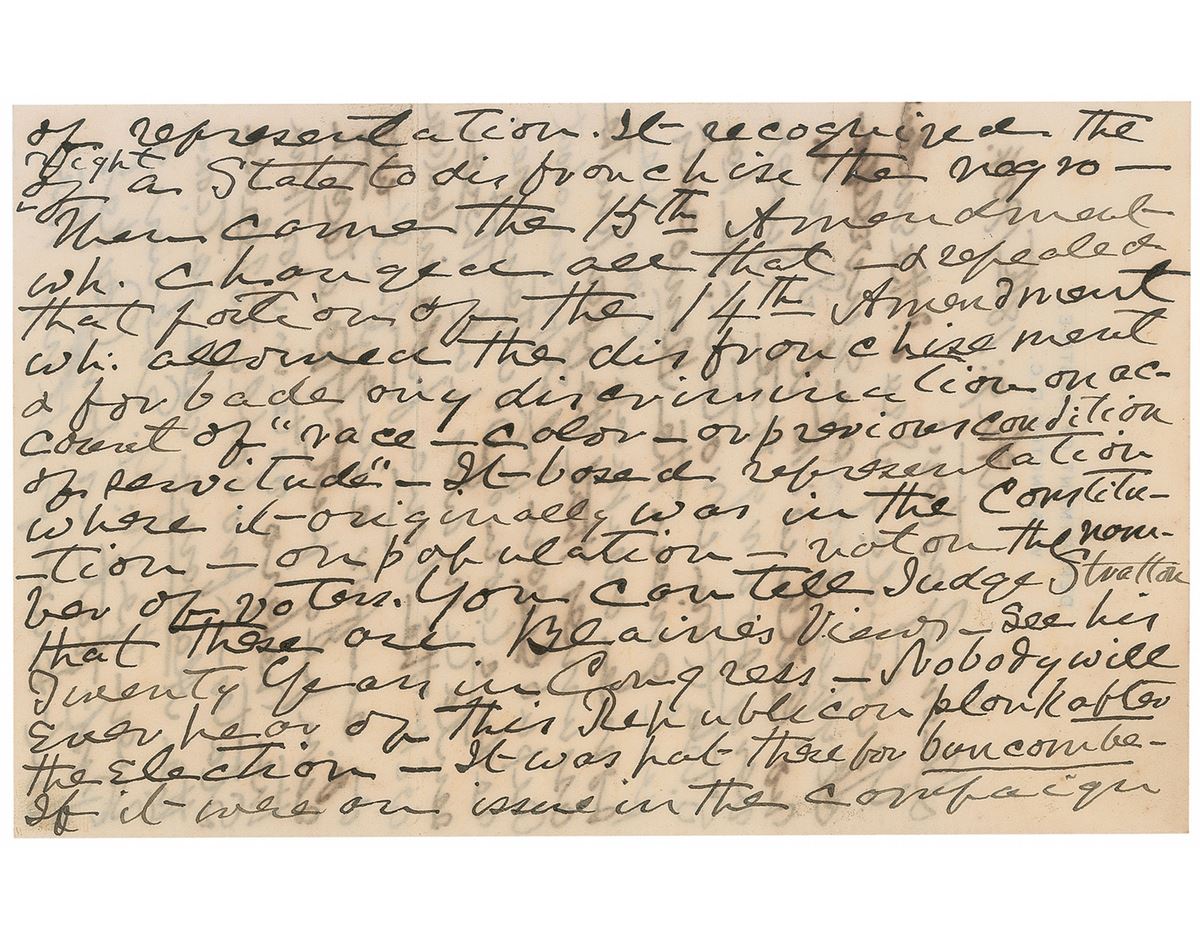 of representation. It recognized the
right
of a State to disfranchise the negro —
Then came the 15th Amendment
wh. changed all that — & repealed
that portion of the 14th Amendment
wh: allowed the disfranchisement
& forbade any discrimination on ac-
count of "race — color — or previous condition
of servitude" — It based representation
where it originally was in the Constitu-
-tion — on population — not on the num-
ber of voters. You can tell Judge Stratton
that these are Blaine's Views — see his
Twenty Years in Congress — Nobody will
Ever hear of this Republican plank after
the Election — It was put there for buncombe —
If it were an issue in the campaign